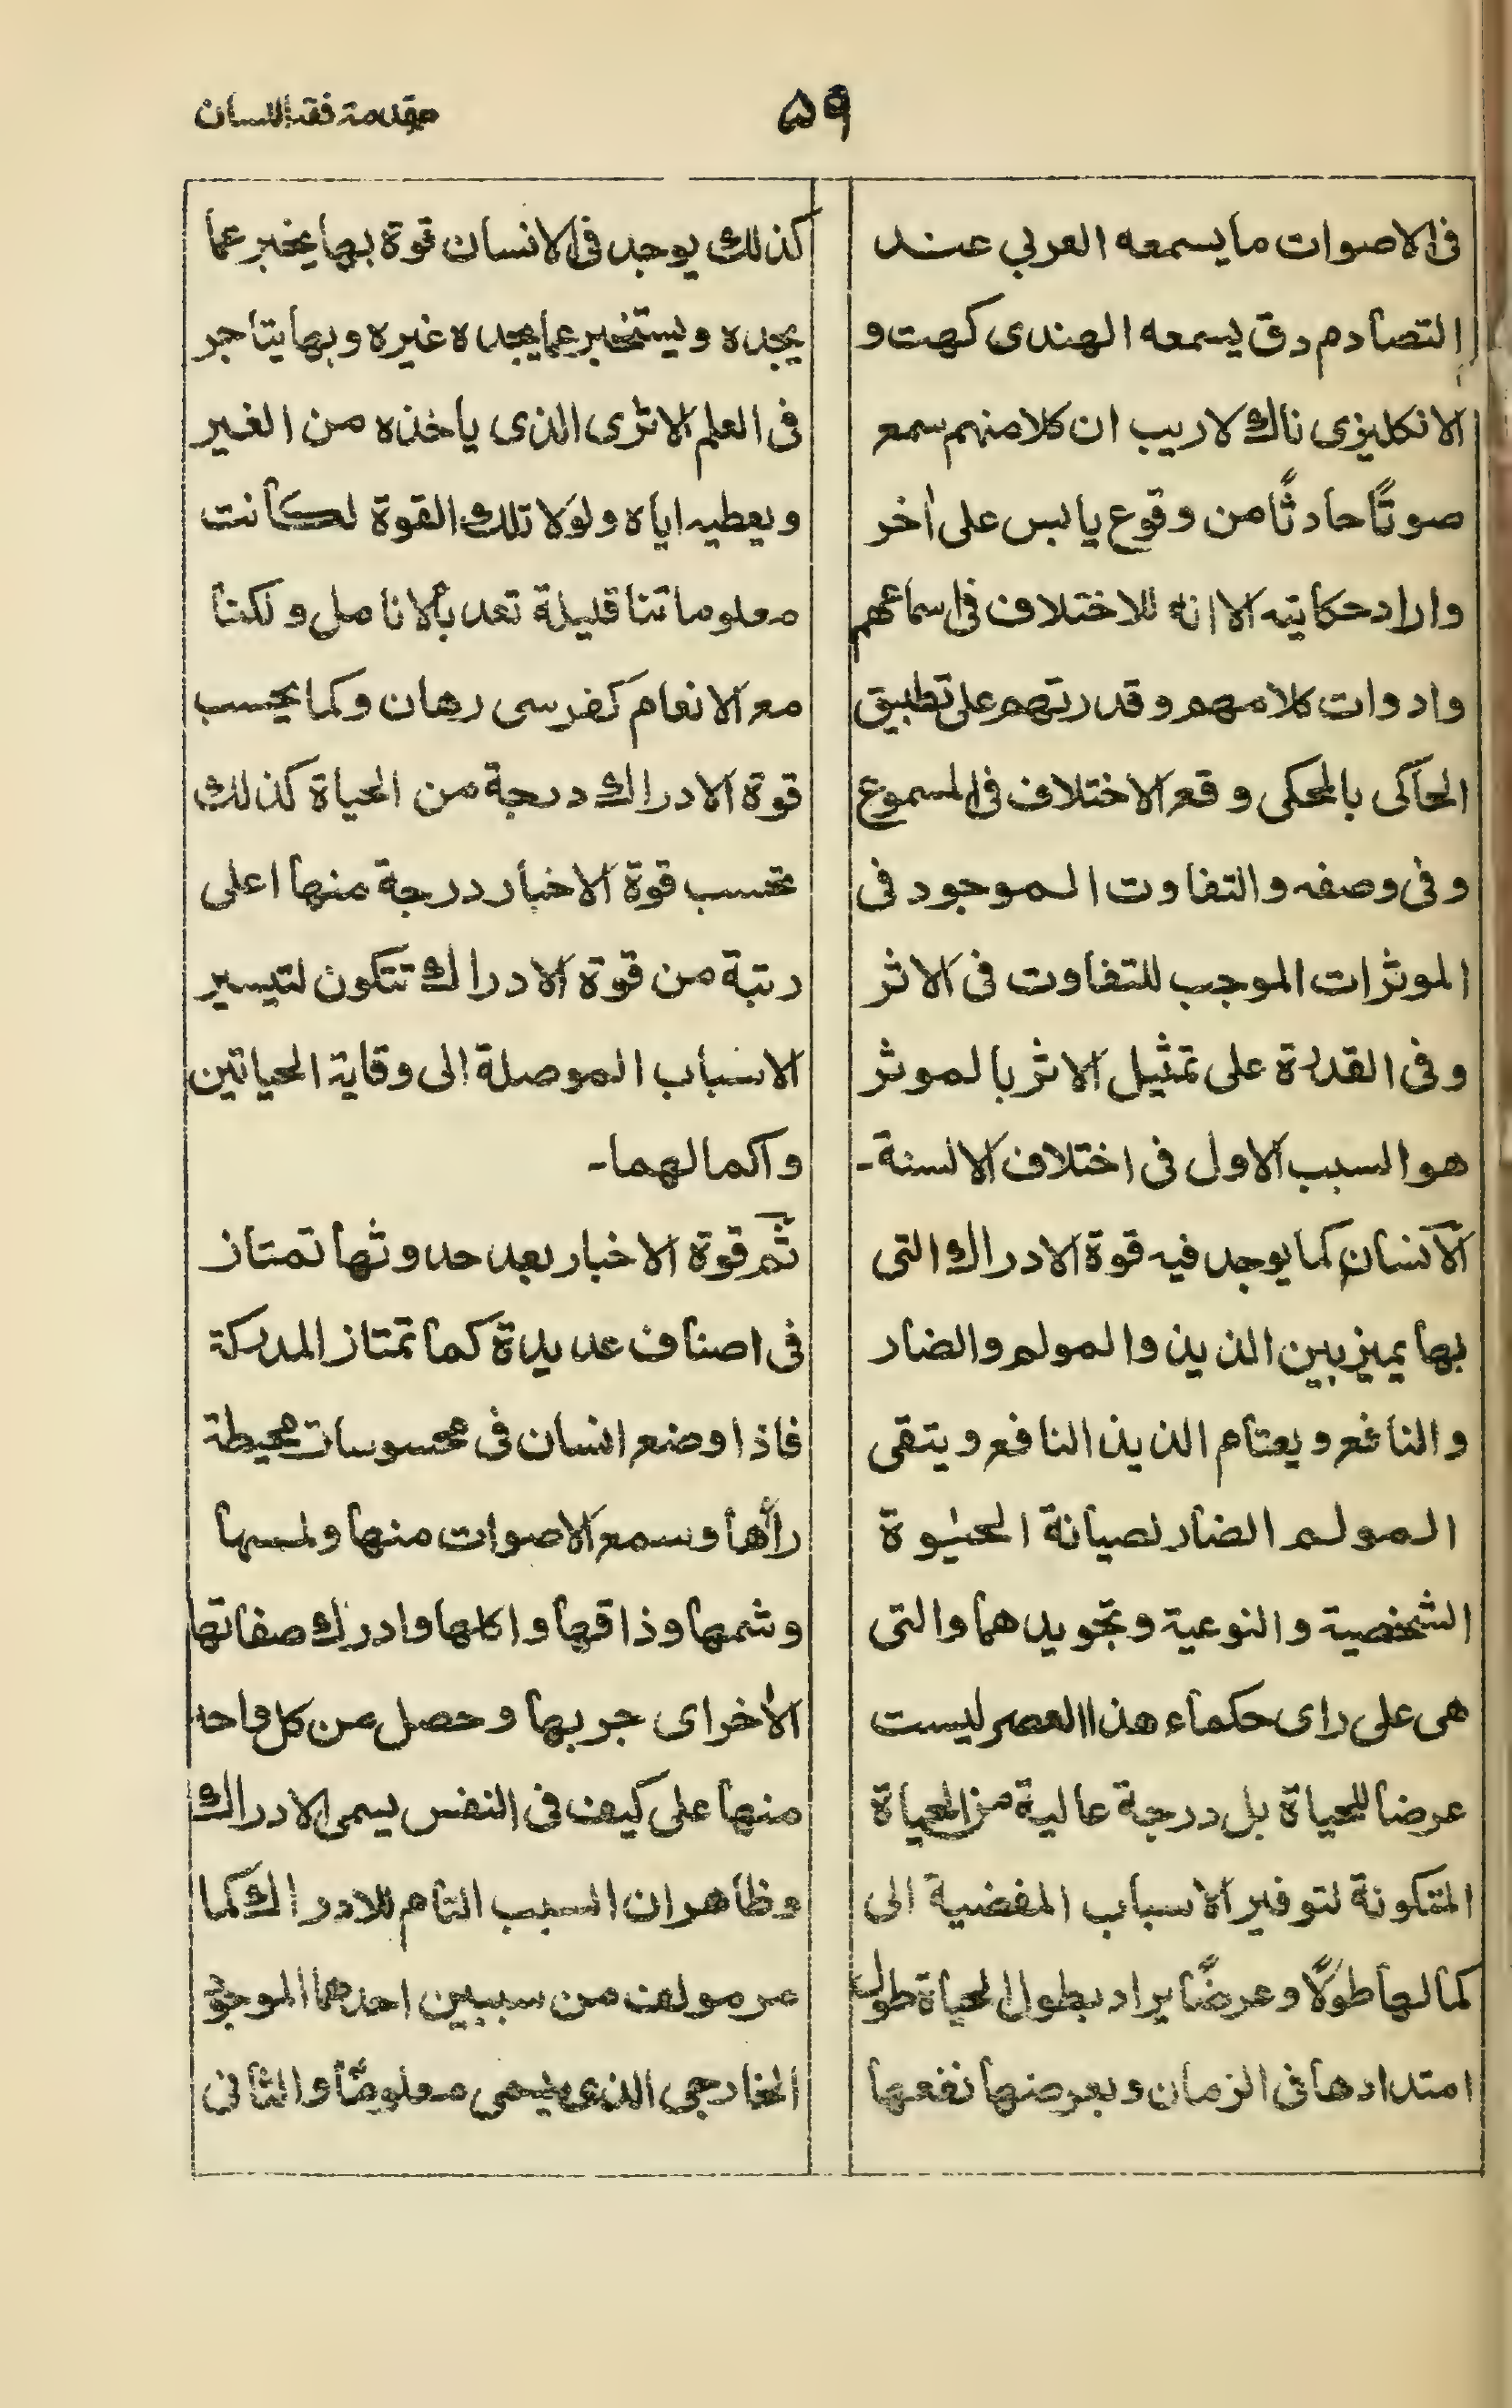 ۵۹
مقدمة فقه اللسان
فى الاصوات ما يسمعه العربي عند
التصادم دق يسمعه الهندى كهت و
الانكليزى ناك لا ريب ان كلا منهم سمع
صوتًا حادثًا من وقوع يابس على اٰخر
واراد حكايته الا انه للاختلاف فى اسماعهم
وادوات كلامهم وقدرتهم على تطبيق
الحاكى بالمحكى وقع الاختلاف فى المسموع
وفى وصفه والتفاوت الموجود فى
الموثرات الموجب للتفاوت فى الاثر
وفى القدرة على تمثيل الاثر بالموثر
هو السبب الاول فى اختلاف الالسنة-
الانسان كما يوجد فيه قوة الادراك التى
بها يميز بين اللذيذ والمولم والضار
والنافع ويعتام اللذيذ النافع ويتقى
المولم الضار لصيانة الحيٰوة
الشخصية والنوعية وتجويدهما والتى
هى على راى حكماء هذا العصر ليست
عرضا للحياة بل درجة عالية من الحياة
المتكونة لتوفير الاسباب المفضية الى
كمالها طولًا وعرضًا يراد بطول الحياة طول
امتدادها فى الزمان وبعرضها نفعها
كذلك يوجد فى الانسان قوة بها يخبر عما
يجده ويستخبر عما يجده غيره وبها يتاجر
فى العلم الاثرى الذى ياخذه من الغير
ويعطيه اياه ولولا تلك القوة لكانت
معلوماتنا قليلة تعد بالانامل ولكنا
مع الانعام كفرسى رهان وكما يحسب
قوة الادراك درجة من الحياة كذلك
تحسب قوة الاخبار درجة منها اعلى
رتبة من قوة الادراك تتكون لتيسير
الاسباب الموصلة الى وقاية الحياتين
واكمالهما-
ثم قوة الاخبار بعد حدوثها تمتاز
فى اصناف عديدة كما تمتاز المدركة
فاذا وضع انسان فى محسوسات محيطة
راٰها وسمع الاصوات منها ولمسها
وشمها وذاقها واكلها وادرك صفاتها
الاخراى جربها وحصل من كل واحد
منها على كيف فى النفس يسمى الادراك
وظاهر ان السبب التام للادراك كما
مر مولف من سببين احدهما الموجود
الخارجى الذى يسمى معلومًا والثانى